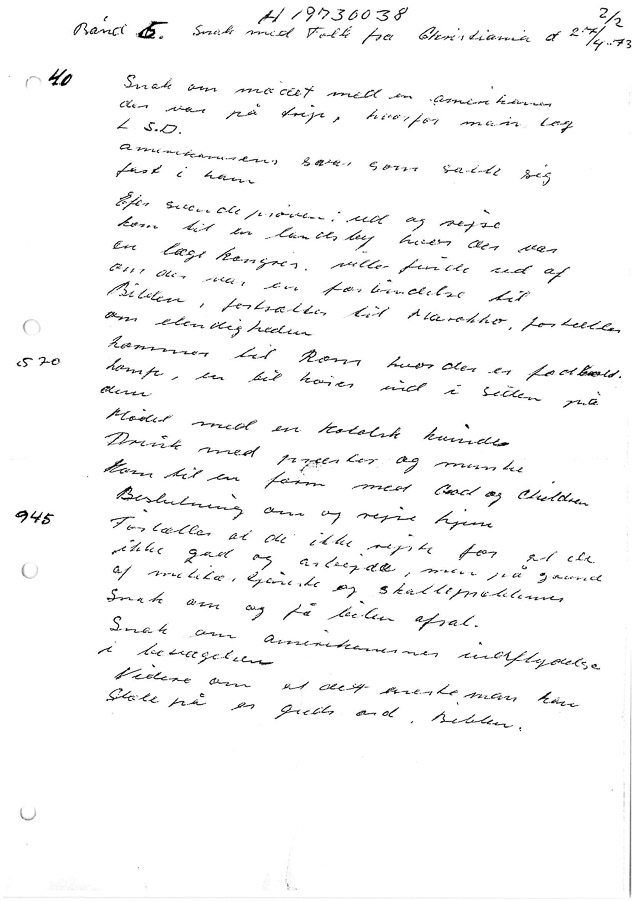 H 19730038
2/2
Bånd 5. Snak med Folk fra Christiania d 27/4-73
40
Snak om mødet med en amerikaner
der var på trip, hvorfor man tog
L S.D.
amerikanerens svar som satte sig
fast i ham
Efter svendeprøven: ud og rejse
kom til en landsby hvor der var
en læge kongres. ville finde ud af
om der var en forbindelse til
Bibelen, fortsætter til Marokko, fortæller
om elendigheden
570
kommer til Rom hvor der er fodbold-
kamp, en bil kører ind i siden på
dem
Mødet med en katolsk kvinde
Drink med præster og munke
Kom til en farm med God og Children
Beslutning om og rejse hjem
945
Fortæller at de ikke rejste for at de
ikke gad og arbejde, men på grund
af militær, tjeneste og skatteproblemer
Snak om og få bilen afsat.
Snak om amerikanernes indflydelse
i bevægelsen
Videre om at det eneste man kan
stole på er guds ord. Biblen.